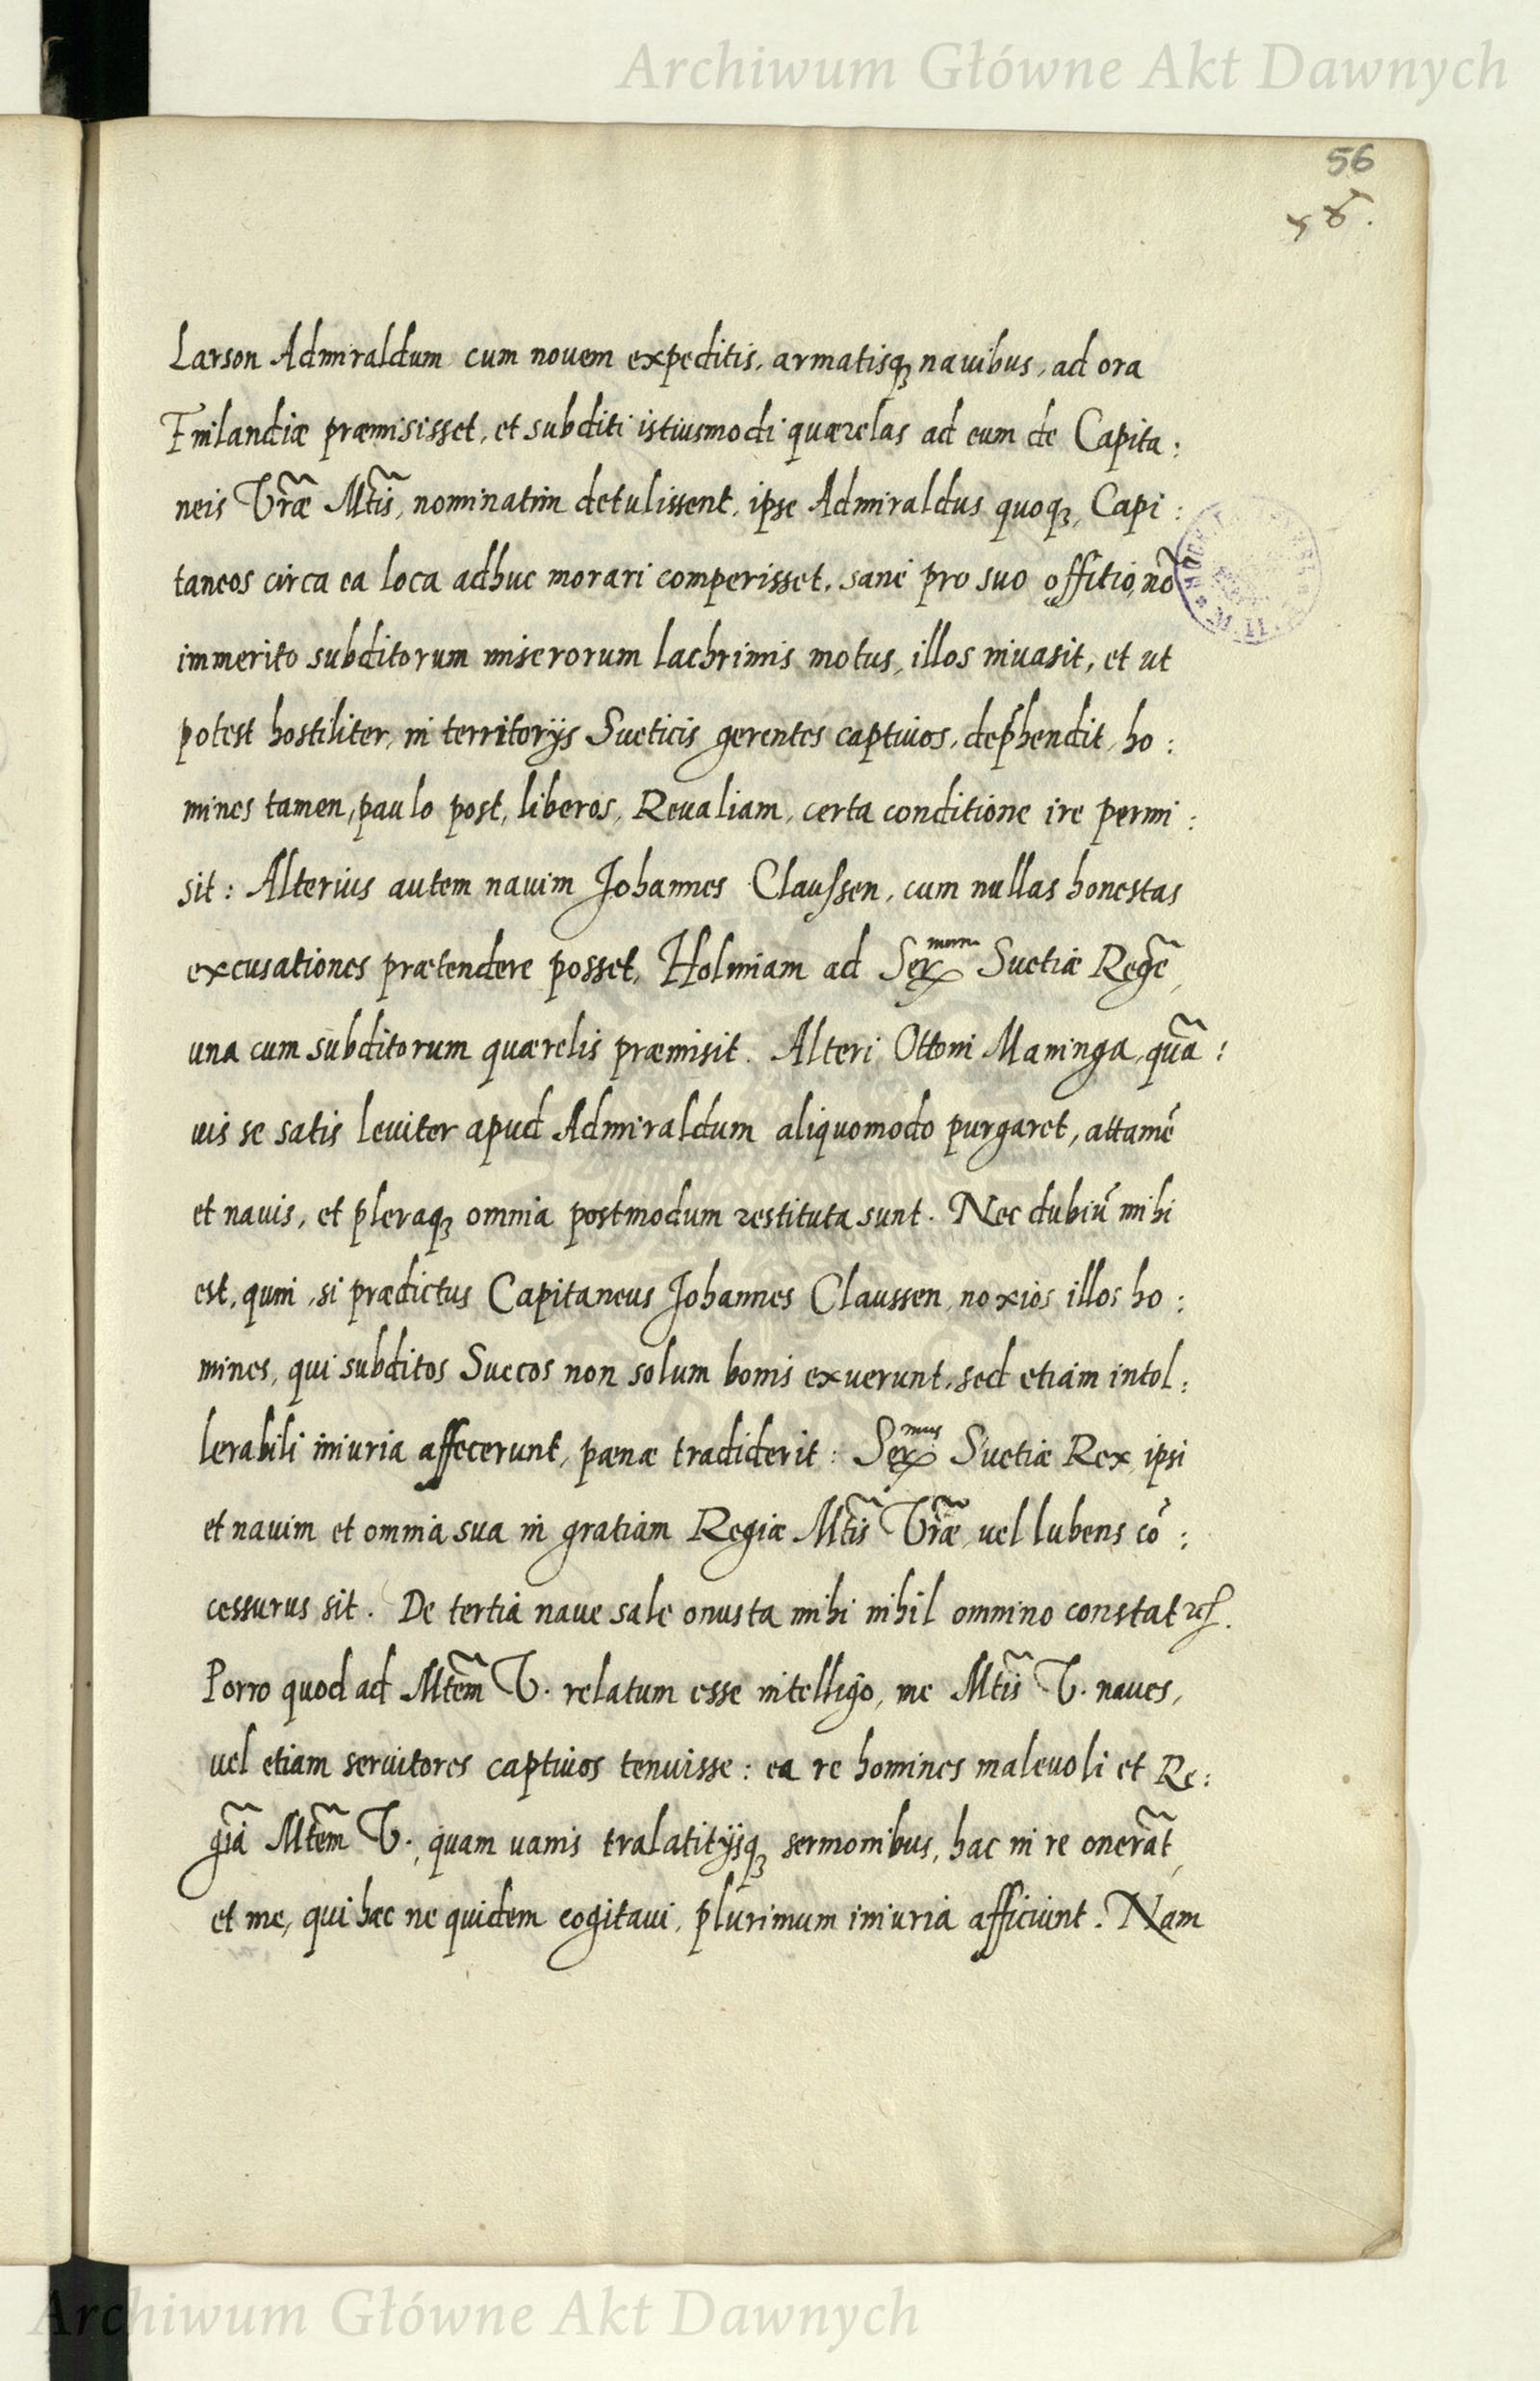 Archiwum Główne Akt Dawnych
56
Larson Admiraldum cum nouem expeditis, armatisqꝫ nauibus, ad ora
Finlandiæ præmisisset, et subditi istiusmodi quærelas ad eum de Capita:
neis Vr̃æ Mt̃is, nominatim detulissent, ipse Admiraldus quoqꝫ, Capi:
taneos circa ea loca adhuc morari comperisset, sane pro suo offitio, nõ
immerito subditorum miserorum lachrimis motus, illos inuasit, et ut
potest hostiliter, in territorijs Sueticis gerentes captiuos, dep̃hendit, ho:
mines tamen, paulo post, liberos, Reualiam, certa conditione ire permi:
sit: Alterius autem nauim Johannes Claussen, cum nullas honestas
excusationes prætendere posset, Holmiam ad Ser.mum Suetiæ Regẽ,
una cum subditorum quærelis præmisit. Alteri Ottoni Maninga, quã:
uis se satis leuiter apud Admiraldum aliquomodo purgaret, attamẽ
et nauis, et pleraqꝫ omnia postmodum restituta sunt. Nec dubiũ mihi
est, quin, si prædictus Capitaneus Johannes Claussen, noxios illos ho:
mines, qui subditos Suecos non solum bonis exuerunt, sed etiam intol:
lerabili iniuria affecerunt, pænæ tradiderit: Ser.mus Suetiæ Rex, ipsi
et nauim et omnia sua in gratiam Regiæ Mt̃is Vr̃æ, uel lubens cõ:
cessurus sit. De tertia naue sale onusta mihi nihil omnino constat ꝛc.
Porro quod ad Mt̃em V. relatum esse intelligo, me Mt̃is V. naues,
uel etiam seruitores captiuos tenuisse: ea re homines maleuoli et Re:
giã Mt̃em V., quam uanis tralatitijsqꝫ sermonibus, hac in re onerãt,
et me, qui hæc ne quidem cogitaui, plurimum iniuria afficiunt. Nam
Archiwum Główne Akt Dawnych